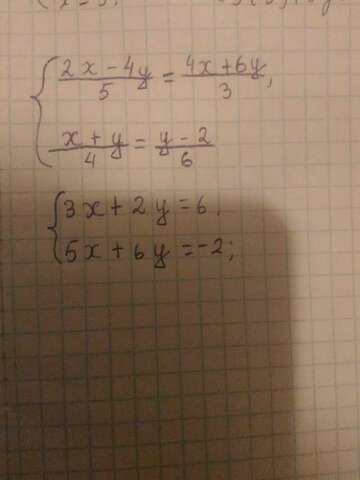 { (2x - 4y)/5 = (4x + 6y)/3,
(x + y)/4 = (y - 2)/6
{ 3x + 2y = 6,
5x + 6y = -2;